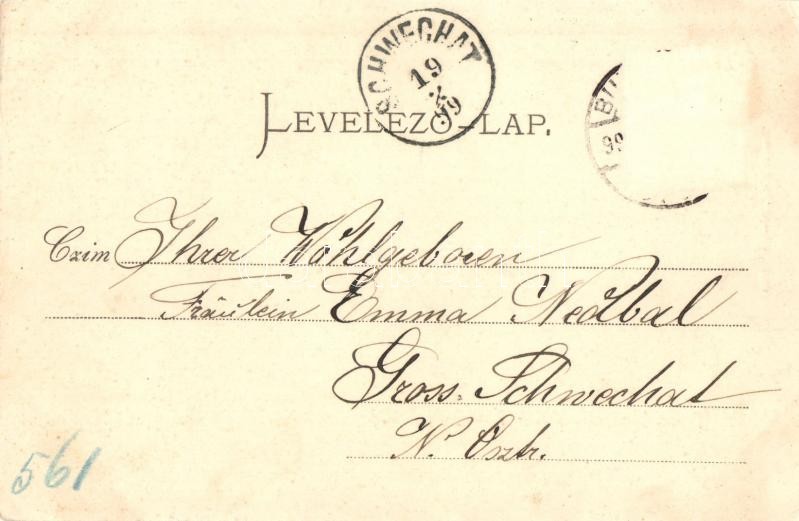 SCHWECHAT
19
X
99
BU
99
LEVELEZŐ-LAP.
Czim Ihrer Wohlgeboren
Fräulein Emma Nedbal
Gross-Schwechat
N. Östr.
561